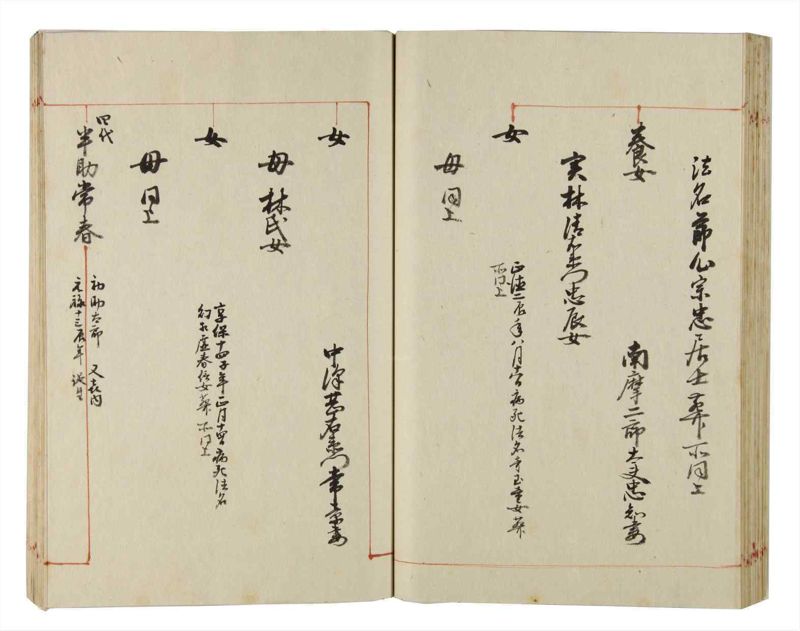 法名節心宗忠居士葬所同上
養女
南摩二郎太夫忠知妻
実林清左衛門忠辰女
女
正徳二辰年八月 病死法名 玉 童女葬
所同上
母同上
女
中澤甚右衛門常京妻
母林氏女
女
享保十四 年正月十四日病死法名
幻 虚春信女葬所同上
母同上
四代
半助常春
初助太郎 又喜内
元禄十三辰年誕生